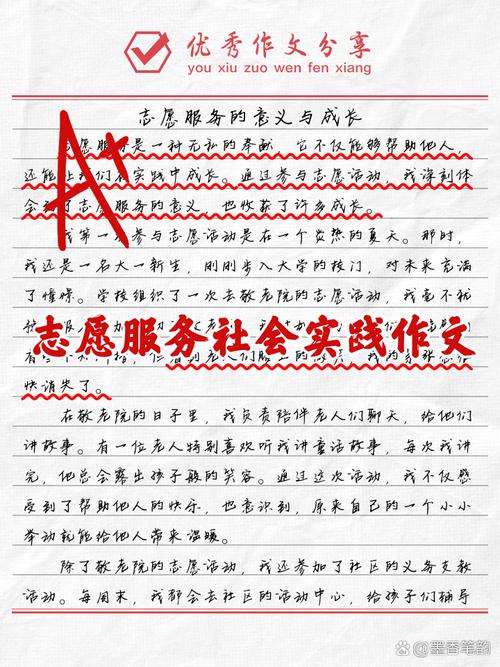 优秀作文分享
you xiu zuo wen fen xiang
志愿服务的意义与成长
A+
志愿服务是一种无私的奉献，它不仅能够帮助他人，
还能让我们在实践中成长。通过参与志愿活动，我深刻体
会到了志愿服务的意义，也收获了许多成长。
我第一次参与志愿活动是在一个炎热的夏天。那时，
我还是一名大一新生，刚刚步入大学的校门，对未来充满
了憧憬。学校组织了一次去敬老院的志愿活动，我毫不犹
志愿服务社会实践作文
快消失了。
在敬老院的日子里，我负责陪伴老人们聊天，给他们
讲故事。有一位老人特别喜欢听我讲童话故事，每次我讲
完，他总会露出孩子般的笑容。通过这次活动，我不仅感
受到了帮助他人的快乐，也意识到，原来自己的一个小小
举动就能给他人带来温暖。
除了敬老院的志愿活动，我还参加了社区的义务支教
活动。每周末，我都会去社区的活动中心，给孩子们辅导
墨香笔韵